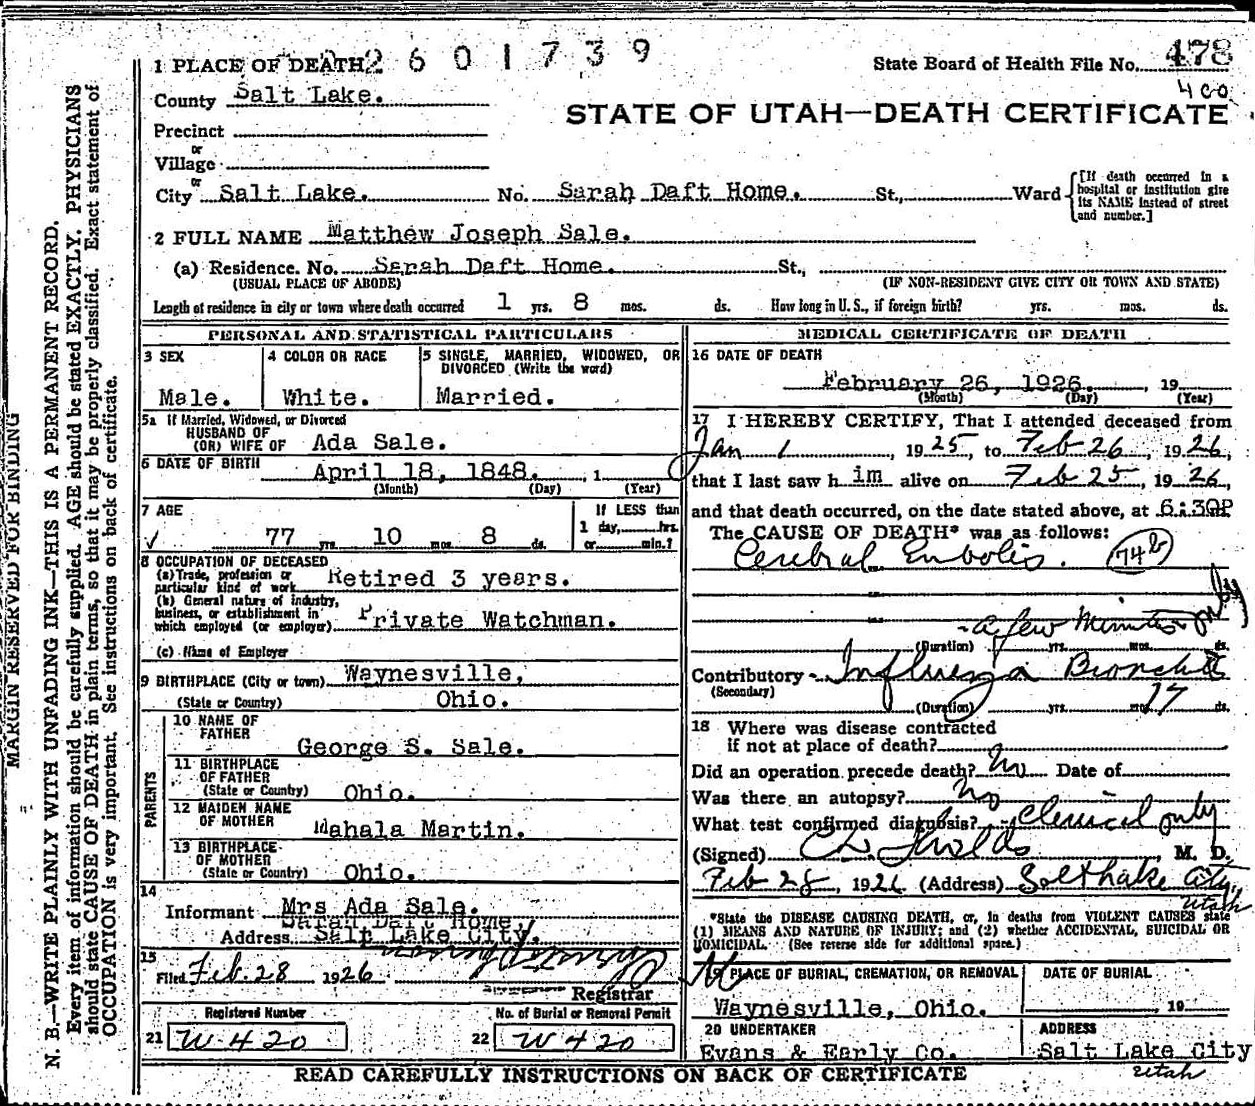 2601739
1 PLACE OF DEATH
State Board of Health File No. 478
400
County Salt Lake.
STATE OF UTAH—DEATH CERTIFICATE
Precinct
or
Village
or
City Salt Lake. No. Sarah Daft Home. St., Ward [If death occurred in a hospital or institution give its NAME instead of street and number.]
2 FULL NAME Matthew Joseph Sale.
(a) Residence. No. Sarah Daft Home. St.,
(USUAL PLACE OF ABODE) (IF NON-RESIDENT GIVE CITY OR TOWN AND STATE)
Length of residence in city or town where death occurred 1 yrs. 8 mos. ds. How long in U. S., if foreign birth? yrs. mos. ds.
PERSONAL AND STATISTICAL PARTICULARS
3 SEX
Male.
4 COLOR OR RACE
White.
5 SINGLE, MARRIED, WIDOWED, OR DIVORCED (Write the word)
Married.
5a If Married, Widowed, or Divorced
HUSBAND OF
(OR) WIFE OF Ada Sale.
6 DATE OF BIRTH April 18, 1848. , 1
(Month) (Day) (Year)
7 AGE
77 yrs. 10 mos. 8 ds.
If LESS than
1 day, hrs.
or min.?
8 OCCUPATION OF DECEASED
(a) Trade, profession or
particular kind of work Retired 3 years.
(b) General nature of industry,
business, or establishment in
which employed (or employer) Private Watchman.
(c) Name of Employer
9 BIRTHPLACE (City or town) Waynesville,
(State or Country) Ohio.
PARENTS
10 NAME OF
FATHER
George S. Sale.
11 BIRTHPLACE
OF FATHER
(State or Country) Ohio.
12 MAIDEN NAME
OF MOTHER
Mahala Martin.
13 BIRTHPLACE
OF MOTHER
(State or Country) Ohio.
14
Informant Mrs Ada Sale.
Sarah Daft Home,
Address Salt Lake City.
15
Filed Feb. 28 1926
Registrar
Registered Number
21 W 420
No. of Burial or Removal Permit
22 W 420
MEDICAL CERTIFICATE OF DEATH
16 DATE OF DEATH
February 26, 1926. , 19
(Month) (Day) (Year)
17 I HEREBY CERTIFY, That I attended deceased from
Jan 1 , 1925, to Feb 26, 1926,
that I last saw him alive on Feb 25, 1926
and that death occurred, on the date stated above, at 6:30P
The CAUSE OF DEATH* was as follows:
Cerebral Embolis. 74b
- a few Minutes only
(Duration) yrs. mos. ds.
Contributory Influenza Bronchitis
(Secondary)
(Duration) yrs. mos. 17 ds.
18 Where was disease contracted
if not at place of death?
Did an operation precede death? No Date of
Was there an autopsy? No
What test confirmed diagnosis? Clinical only
(Signed) , M. D.
Feb 28, 1926 (Address) Salt Lake City,
Utah
*State the DISEASE CAUSING DEATH, or, in deaths from VIOLENT CAUSES state
(1) MEANS AND NATURE OF INJURY; and (2) whether ACCIDENTAL, SUICIDAL OR
HOMICIDAL. (See reverse side for additional space.)
19 PLACE OF BURIAL, CREMATION, OR REMOVAL
Waynesville, Ohio.
DATE OF BURIAL
19
20 UNDERTAKER
Evans & Early Co.
ADDRESS
Salt Lake City
Utah
READ CAREFULLY INSTRUCTIONS ON BACK OF CERTIFICATE
MARGIN RESERVED FOR BINDING
N. B.—WRITE PLAINLY WITH UNFADING INK—THIS IS A PERMANENT RECORD.
Every item of information should be carefully supplied. AGE should be stated EXACTLY. PHYSICIANS
should state CAUSE OF DEATH in plain terms, so that it may be properly classified. Exact statement of
OCCUPATION is very important. See instructions on back of certificate.